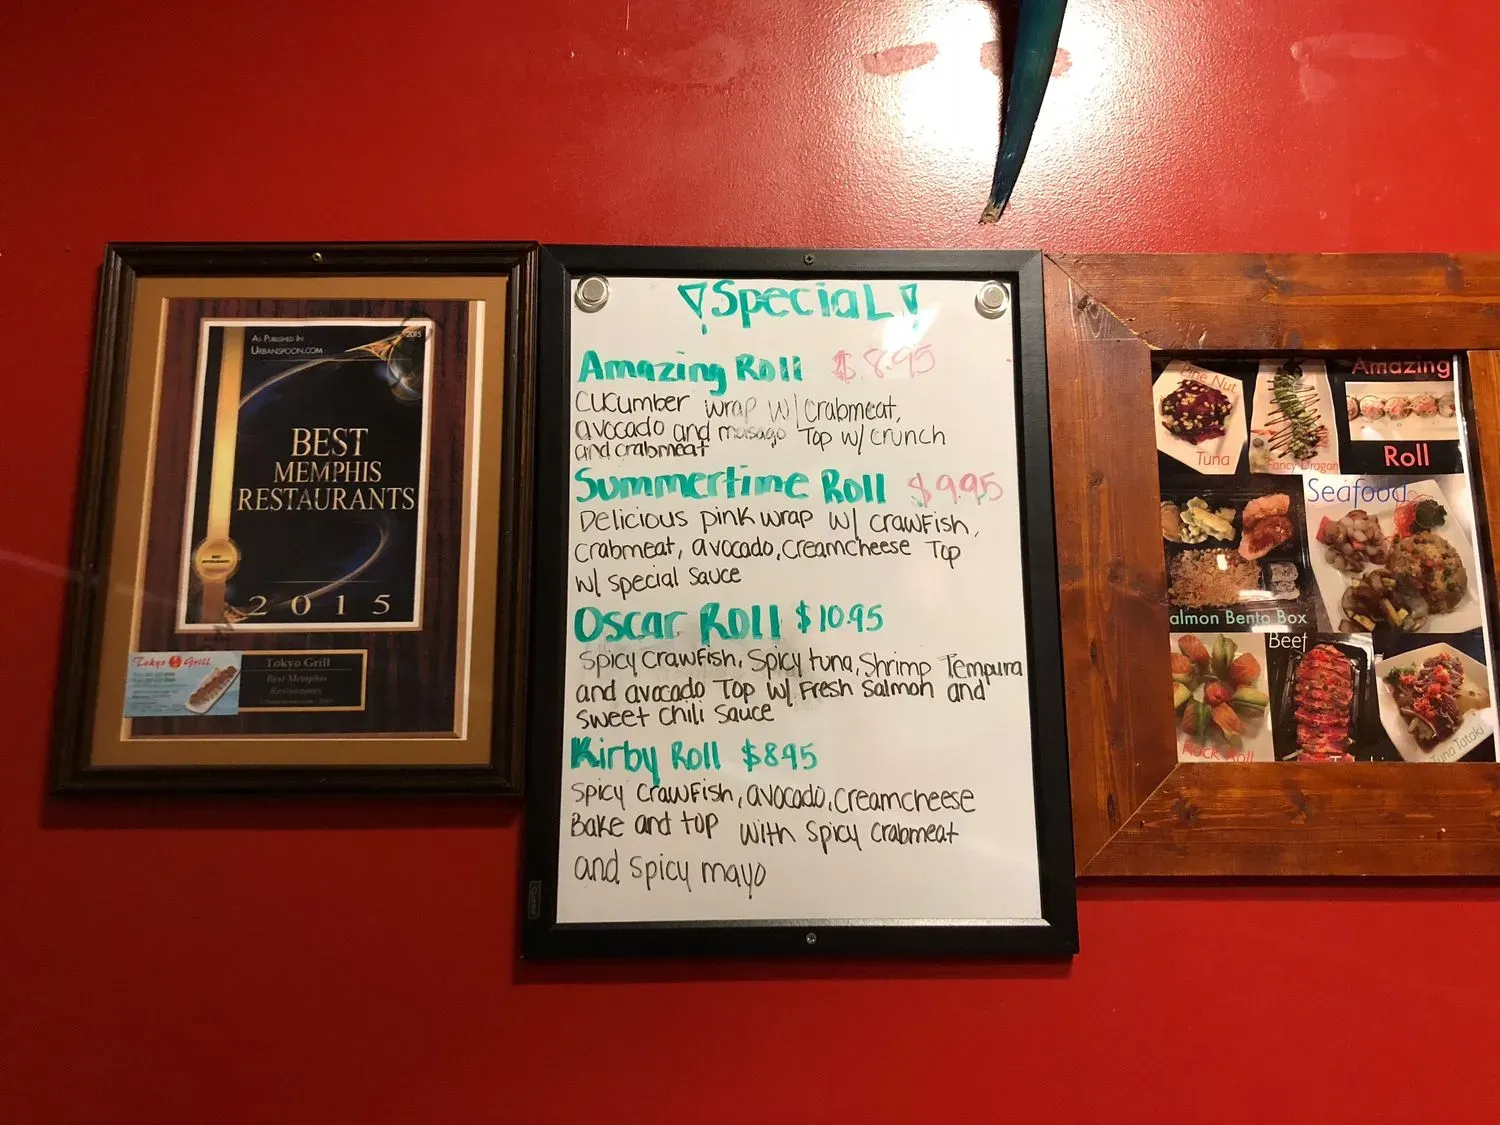 As Published In:
Urbanspoon.com
2015
BEST
MEMPHIS
RESTAURANTS
2015
Tokyo Grill
Tokyo Grill
Best Memphis
Restaurants
Special
Amazing Roll $8.95
Cucumber wrap w/ crabmeat,
avocado and masago Top w/ crunch
and crabmeat
Summertime Roll $9.95
Delicious pink wrap w/ crawfish,
crabmeat, avocado, creamcheese Top
w/ special sauce
Oscar Roll $10.95
Spicy crawfish, Spicy tuna, Shrimp Tempura
and avocado Top w/ Fresh Salmon and
sweet chili sauce
Kirby Roll $8.95
Spicy crawfish, avocado, creamcheese
Bake and top with spicy crabmeat
and spicy mayo
Pine Nut
Tuna
Fancy Dragon
Amazing
Roll
Seafood
almon Bento Box
Beef
Rock Roll
Tuna Tataki